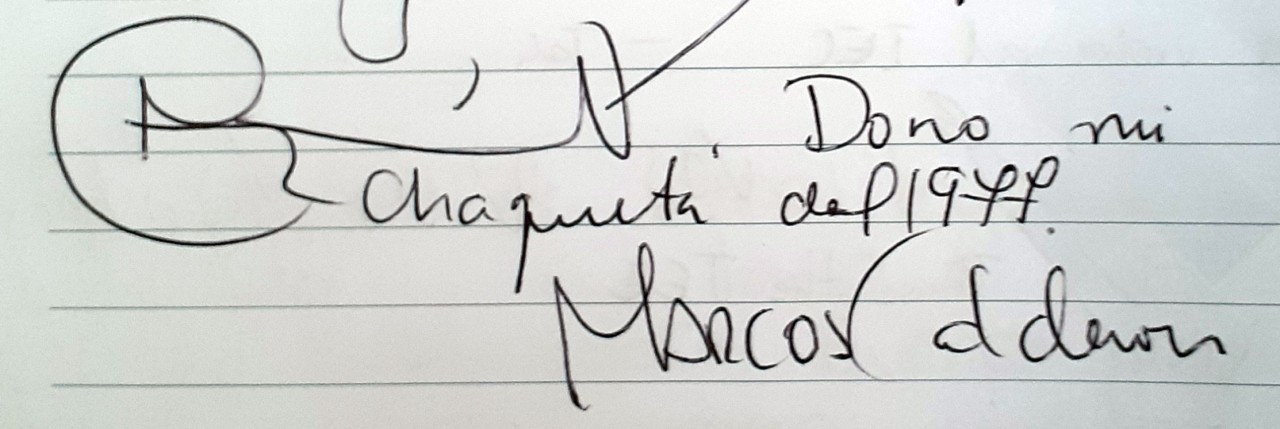 . Dono mi
Chaqueta del 1977.
Marcos Calderon